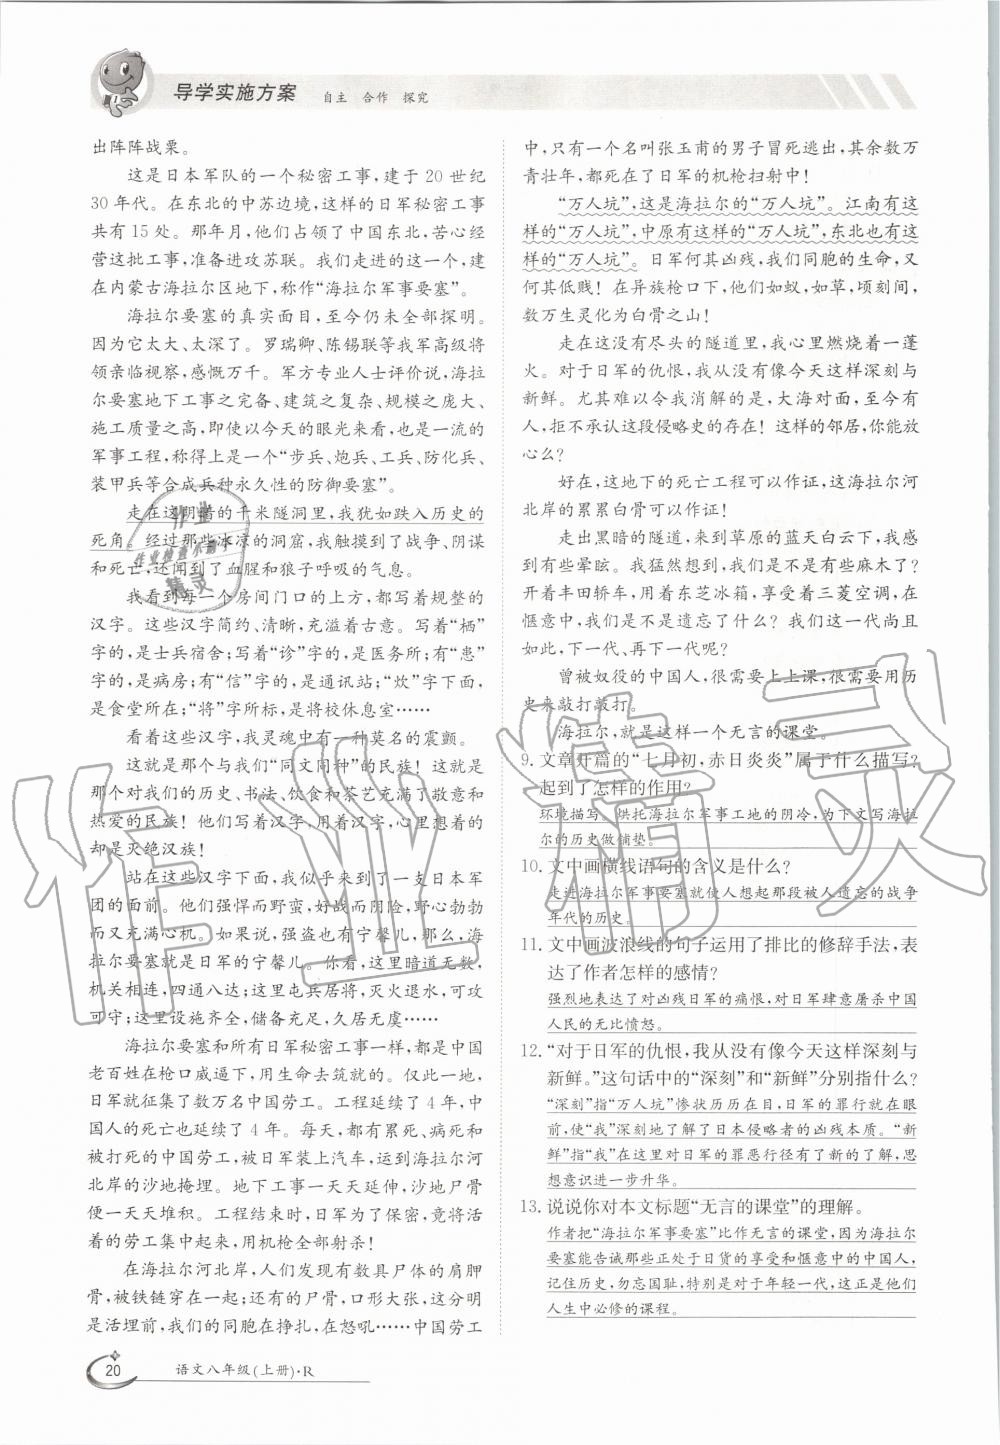 导学实施方案 自主 合作 探究
出阵阵战栗。
这是日本军队的一个秘密工事，建于 20 世纪
30 年代。在东北的中苏边境，这样的日军秘密工事
共有 15 处。那年月，他们占领了中国东北，苦心经
营这批工事，准备进攻苏联。我们走进的这一个，建
在内蒙古海拉尔区地下，称作“海拉尔军事要塞”。
海拉尔要塞的真实面目，至今仍未全部探明。
因为它太大、太深了。罗瑞卿、陈锡联等我军高级将
领亲临视察，感慨万千。军方专业人士评价说，海拉
尔要塞地下工事之完备、建筑之复杂、规模之庞大、
施工质量之高，即使以今天的眼光来看，也是一流的
军事工程，称得上是一“步兵、炮兵、工兵、防化兵、
装甲兵等合成兵种永久性的防御要塞”。
走在这阴暗的千米隧洞里，我犹如跌入历史的
死角。经过那些冰凉的洞窟，我触摸到了战争、阴谋
和死亡，还闻到了血腥和狼子呼吸的气息。
我看到每一个房间门口的上方，都写着规整的
汉字。这些汉字简约、清晰，充溢着古意。写着“栖”
字的，是士兵宿舍；写着“诊”字的，是医务所；有“患”
字的，是病房；有“信”字的，是通讯站；“炊”字下面，
是食堂所在；“将”字所标，是将校休息室……
看着这些汉字，我灵魂中有一种莫名的震颤。
这就是那个与我们“同文同种”的民族！这就是
那个对我们的历史、书法、饮食和茶艺充满了敬意和
热爱的民族！他们写着汉字，用着汉字，心里想着的
却是灭绝汉族！
站在这些汉字下面，我似乎来到了一支日本军
团的面前。他们强悍而野蛮，好战而阴险，野心勃勃
而又充满心机。如果说，强盗也有宁馨儿，那么，海
拉尔要塞就是日军的宁馨儿。你看，这里暗道无数，
机关相连，四通八达；这里屯兵居将，灭火退水，可攻
可守；这里设施齐全，储备充足，久居无虞……
海拉尔要塞和所有日军秘密工事一样，都是中国
老百姓在枪口威逼下，用生命去筑就的。仅此一地，
日军就征集了数万名中国劳工。工程延续了 4 年，中
国人的死亡也延续了 4 年。每天，都有累死、病死和
被打死的中国劳工，被日军装上汽车，运到海拉尔河
北岸的沙地掩埋。地下工事一天天延伸，沙地尸骨
便一天天堆积。工程结束时，日军为了保密，竟将活
着的劳工集中起来，用机枪全部射杀！
在海拉尔河北岸，人们发现有数具尸体的肩胛
骨，被铁链穿在一起；还有的尸骨，口形大张，这分明
是活埋前，我们的同胞在挣扎，在怒吼……中国劳工
中，只有一个名叫张玉甫的男子冒死逃出，其余数万
青壮年，都死在了日军的机枪扫射中！
“万人坑”，这是海拉尔的“万人坑”。江南有这
样的“万人坑”，中原有这样的“万人坑”，东北也有这
样的“万人坑”。日军何其凶残，我们同胞的生命，又
何其低贱！在异族枪口下，他们如蚁，如草，顷刻间，
数万生灵化为白骨之山！
走在这没有尽头的隧道里，我心里燃烧着一蓬
火。对于日军的仇恨，我从没有像今天这样深刻与
新鲜。尤其难以令我消解的是，大海对面，至今有
人，拒不承认这段侵略史的存在！这样的邻居，你能放
心么？
好在，这地下的死亡工程可以作证，这海拉尔河
北岸的累累白骨可以作证！
走出黑暗的隧道，来到草原的蓝天白云下，我感
到有些晕眩。我忽然想，我们是不是有些麻木了？
开着丰田轿车，用着东芝冰箱，享受着三菱空调，在
惬意中，我们是不是遗忘了什么？我们这一代尚且
如此，下一代、再下一代呢？
曾被奴役的中国人，很需要上上课，很需要用历
史来敲打敲打。
海拉尔，就是这样一个无言的课堂。
9. 文章开篇的“七月初，赤日炎炎”属于什么描写？
起到了怎样的作用？
环境描写。烘托海拉尔军事工地的阴冷，为下文写海拉
尔的历史做铺垫。
10. 文中画横线语句的含义是什么？
走进海拉尔军事要塞就使人想起那段被人遗忘的战争
年代的历史。
11. 文中画波浪线的句子运用了排比的修辞手法，表
达了作者怎样的感情？
强烈地表达了对凶残日军的痛恨，对日军肆意屠杀中国
人民的无比愤怒。
12. “对于日军的仇恨，我从没有像今天这样深刻与
新鲜。”这句话中的“深刻”和“新鲜”分别指什么？
“深刻”指“万人坑”惨状历历在目，日军的罪行就在眼
前，使“我”深刻地了解了日本侵略者的凶残本质。“新
鲜”指“我”在这里对日军的罪恶行径有了新的了解，思
想意识进一步升华。
13. 说说你对本文标题“无言的课堂”的理解。
作者把“海拉尔军事要塞”比作无言的课堂，因为海拉尔
要塞能告诫那些正处于日货的享受和惬意中的中国人，
记住历史，勿忘国耻，特别是对于年轻一代，这正是他们
人生中必修的课程。
20 语文八年级(上册)·R
作业精灵
作业
作业检查小助手
精灵